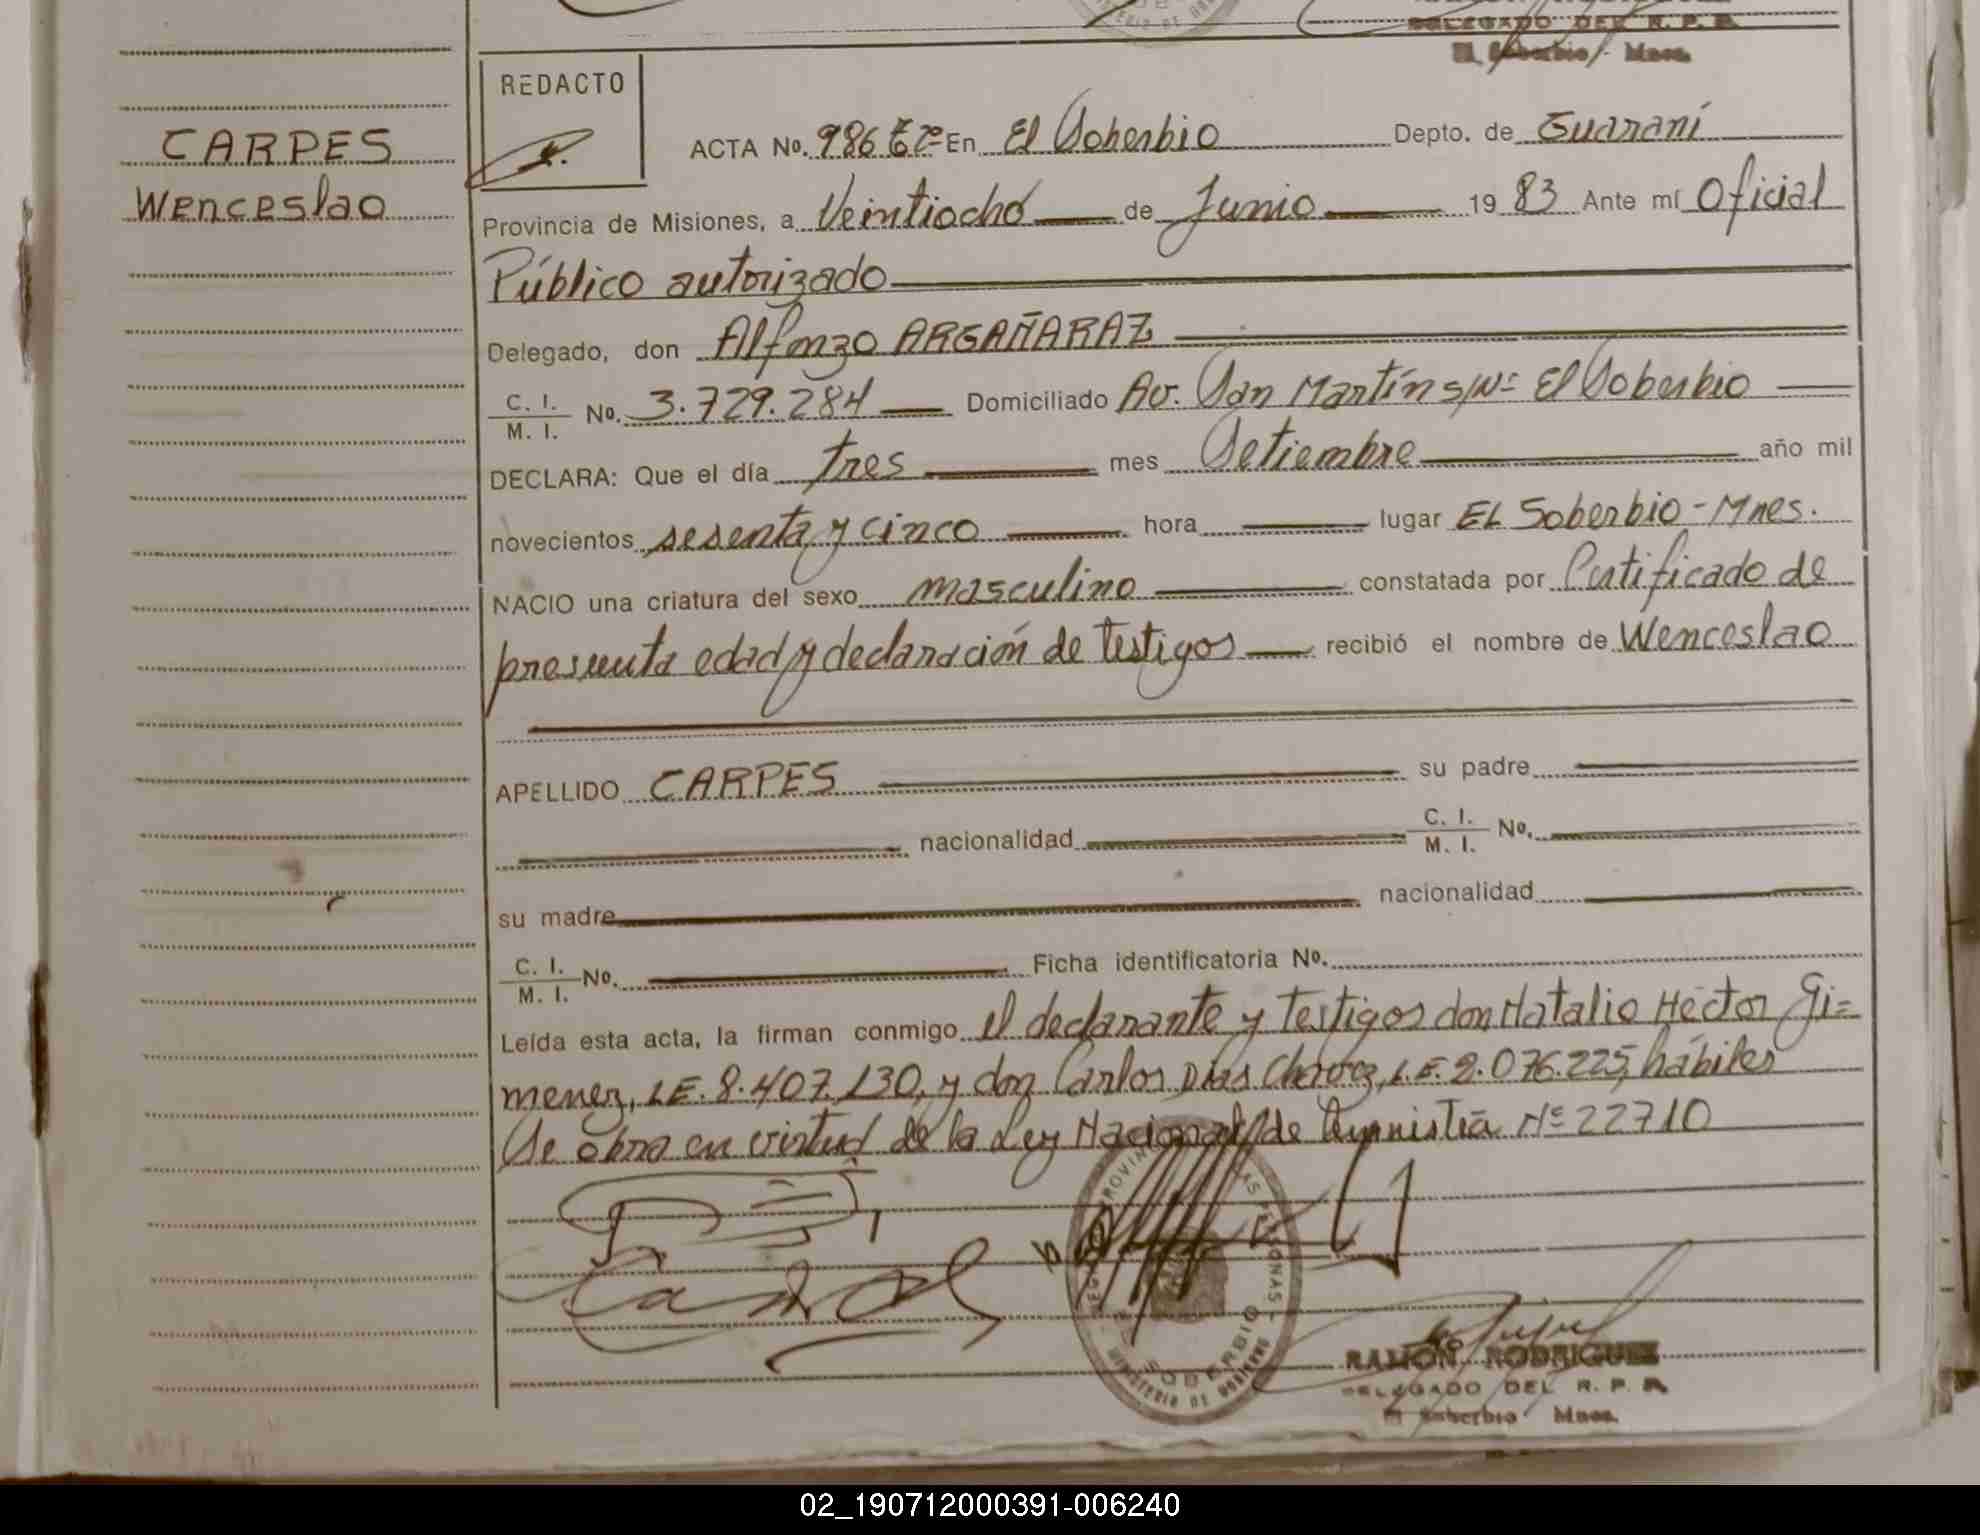 DELEGADO DEL R. P. P.
El Soberbio - Mnes.
REDACTO
CARPES
Wenceslao
ACTA No. 986 En El Soberbio Depto. de Guaraní
Provincia de Misiones, a Veintiocho de Junio 1983 Ante mí Oficial
Público autorizado
Delegado, don Alfonzo ARGAÑARAZ
C. I. / M. I. No. 3.729.284 Domiciliado Av. San Martín s/Nº El Soberbio
DECLARA: Que el día tres mes Setiembre año mil
novecientos sesenta y cinco hora lugar EL Soberbio - Mnes.
NACIO una criatura del sexo masculino constatada por Certificado de
presunta edad y declaración de testigos recibió el nombre de Wenceslao
APELLIDO CARPES su padre
nacionalidad C. I. / M. I. No.
su madre nacionalidad
C. I. / M. I. No. Ficha identificatoria No.
Leída esta acta, la firman conmigo el declarante y testigos don Natalio Héctor Gi=
menez, LE. 8.407.130, y don Carlos Días Chavez, L.E. 2.076.225, hábiles
Se obra en virtud de la Ley Nacional de Amnistía Nº 22710
RAMON RODRIGUEZ
DELEGADO DEL R. P. P.
El Soberbio Mnes.
02_190712000391-006240